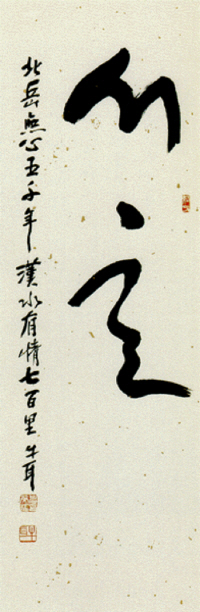 서울
北岳無心五千年 漢水有情七百里 牛耳